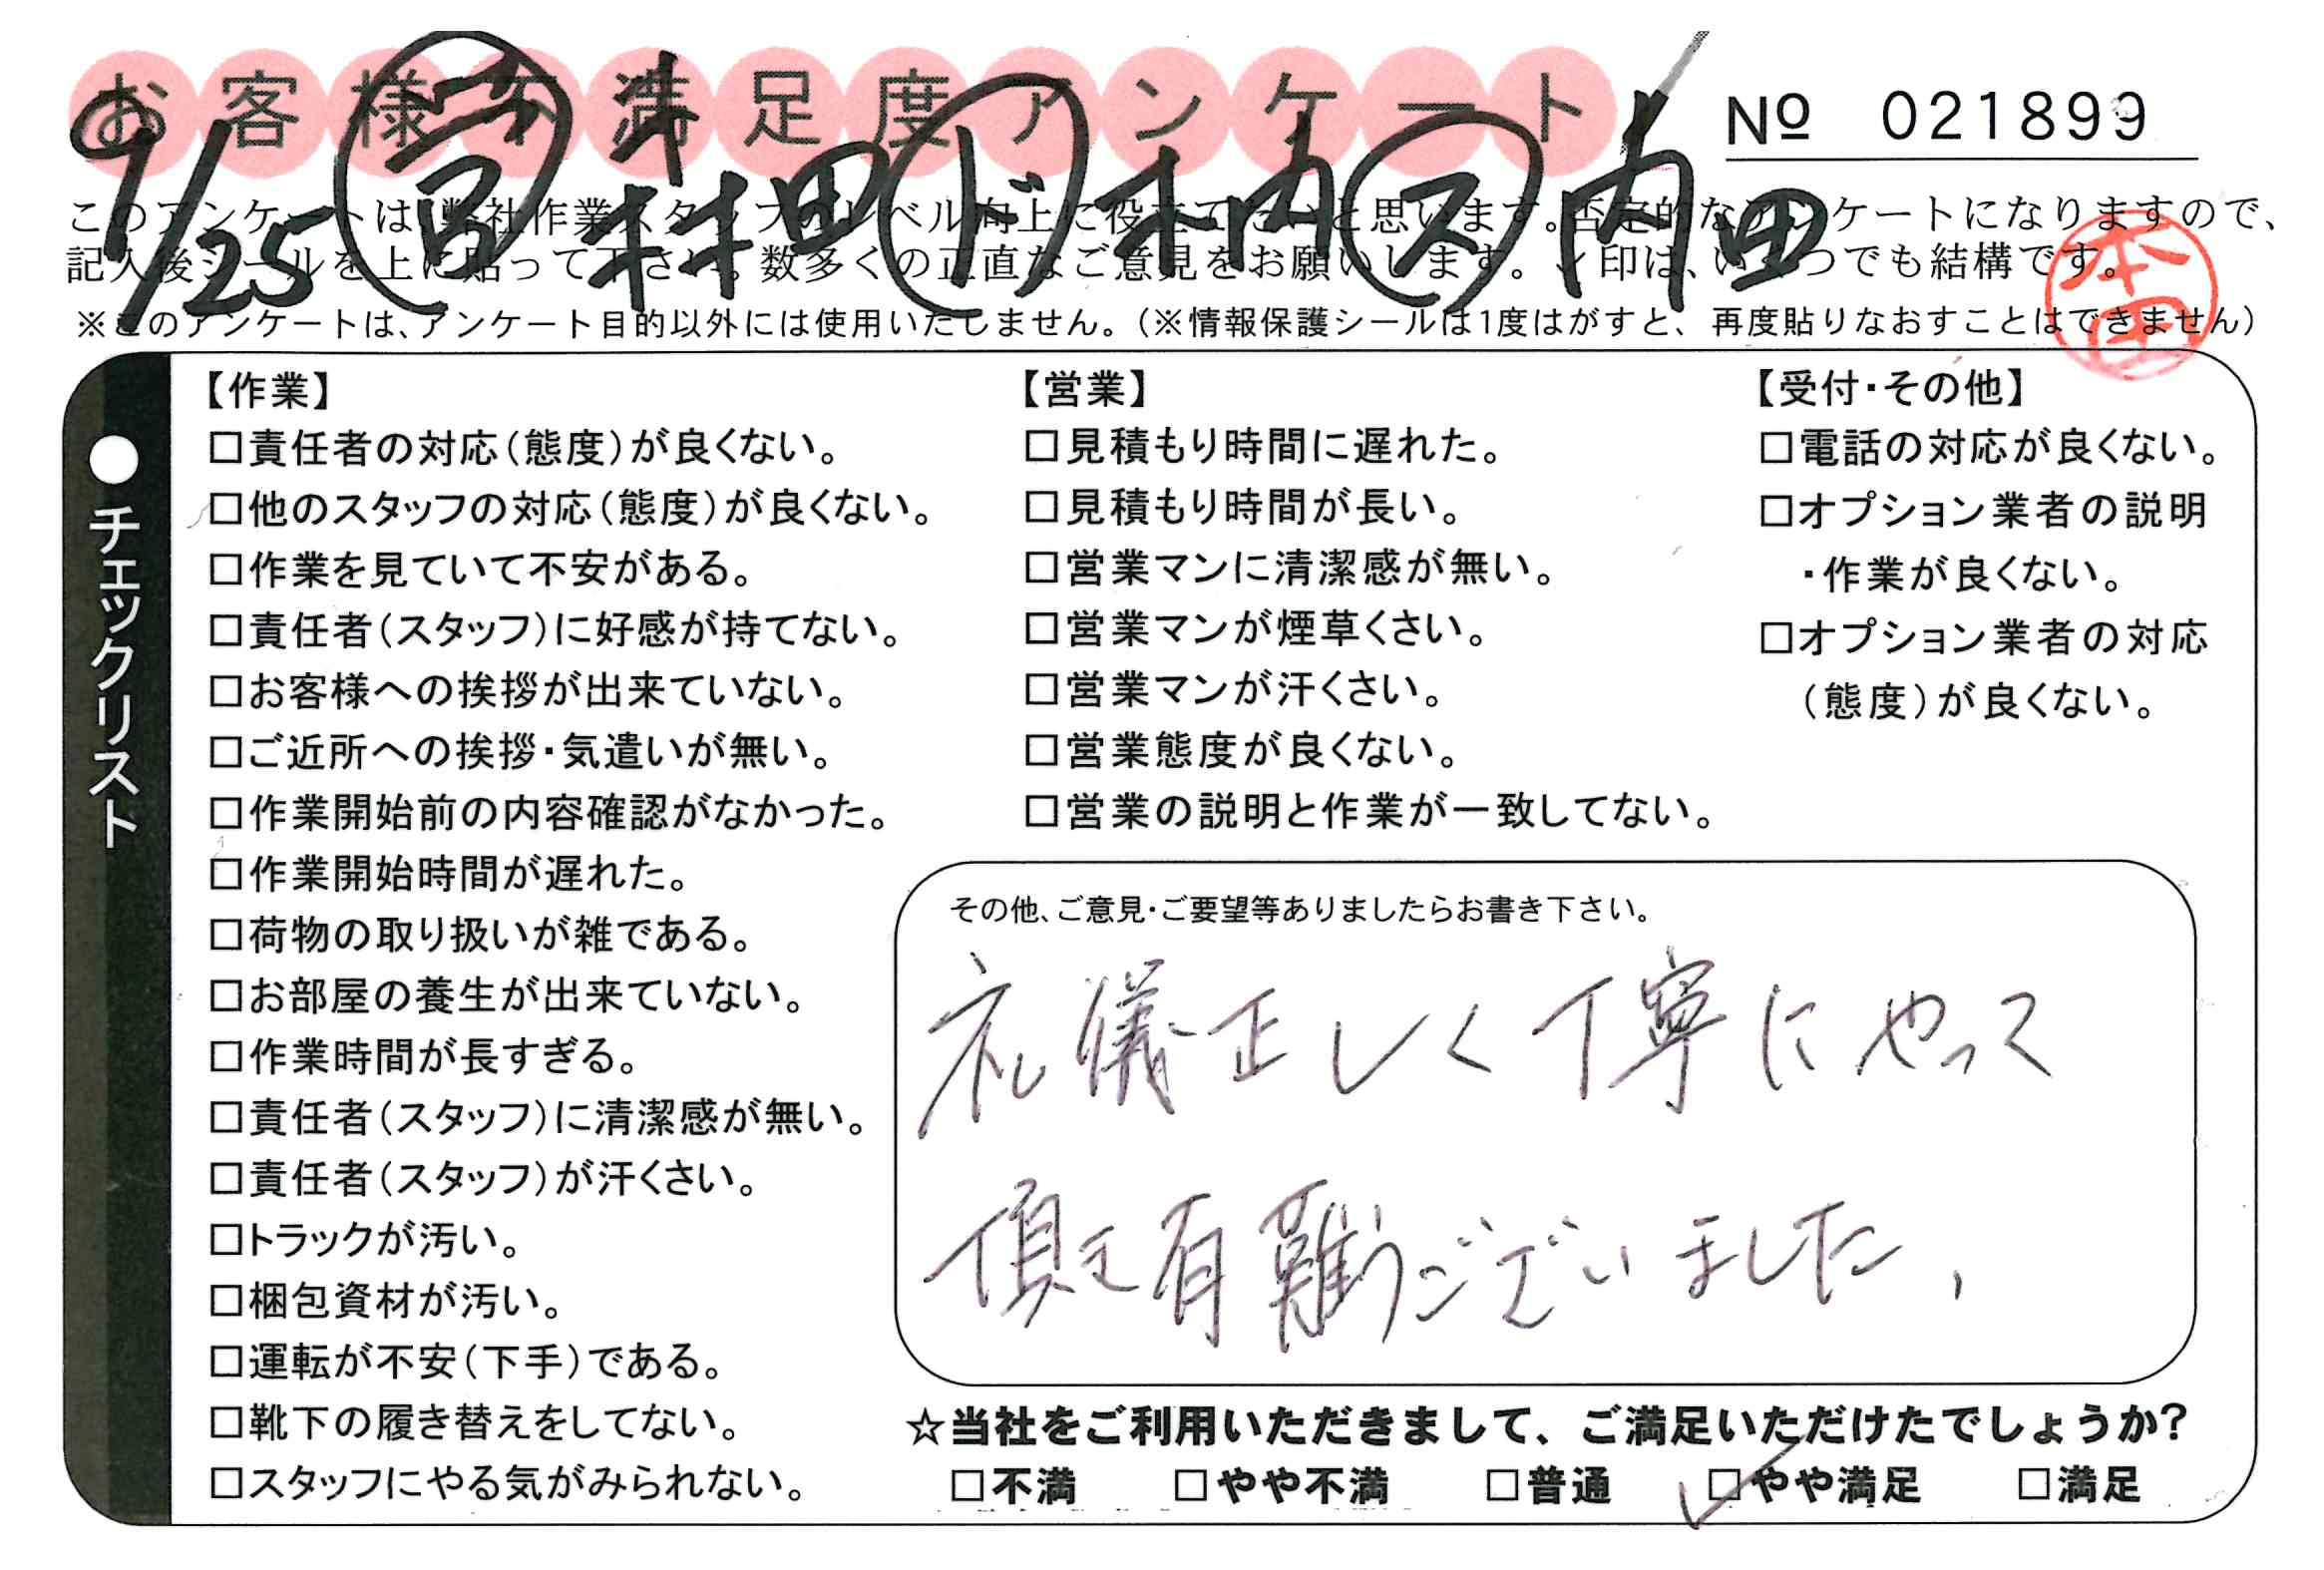 お客様不満足度アンケート
№ 021899
9/25 営 村田 ド 本内 ス 内田
このアンケートは、弊社作業スタッフのレベル向上に役立てたいと思います。否定的なアンケートになりますので、
記入後シールを上に貼って下さい。数多くの正直なご意見をお願いします。レ印は、いくつでも結構です。
本田
※このアンケートは、アンケート目的以外には使用いたしません。(※情報保護シールは1度はがすと、再度貼りなおすことはできません)
●チェックリスト
【作業】
□責任者の対応(態度)が良くない。
□他のスタッフの対応(態度)が良くない。
□作業を見ていて不安がある。
□責任者(スタッフ)に好感が持てない。
□お客様への挨拶が出来ていない。
□ご近所への挨拶・気遣いが無い。
□作業開始前の内容確認がなかった。
□作業開始時間が遅れた。
□荷物の取り扱いが雑である。
□お部屋の養生が出来ていない。
□作業時間が長すぎる。
□責任者(スタッフ)に清潔感が無い。
□責任者(スタッフ)が汗くさい。
□トラックが汚い。
□梱包資材が汚い。
□運転が不安(下手)である。
□靴下の履き替えをしてない。
□スタッフにやる気がみられない。
【営業】
□見積もり時間に遅れた。
□見積もり時間が長い。
□営業マンに清潔感が無い。
□営業マンが煙草くさい。
□営業マンが汗くさい。
□営業態度が良くない。
□営業の説明と作業が一致してない。
【受付・その他】
□電話の対応が良くない。
□オプション業者の説明
・作業が良くない。
□オプション業者の対応
(態度)が良くない。
その他、ご意見・ご要望等ありましたらお書き下さい。
礼儀正しく丁寧にやって
頂き有難うございました、
☆当社をご利用いただきまして、ご満足いただけたでしょうか?
□不満 □やや不満 □普通 ☑やや満足 □満足